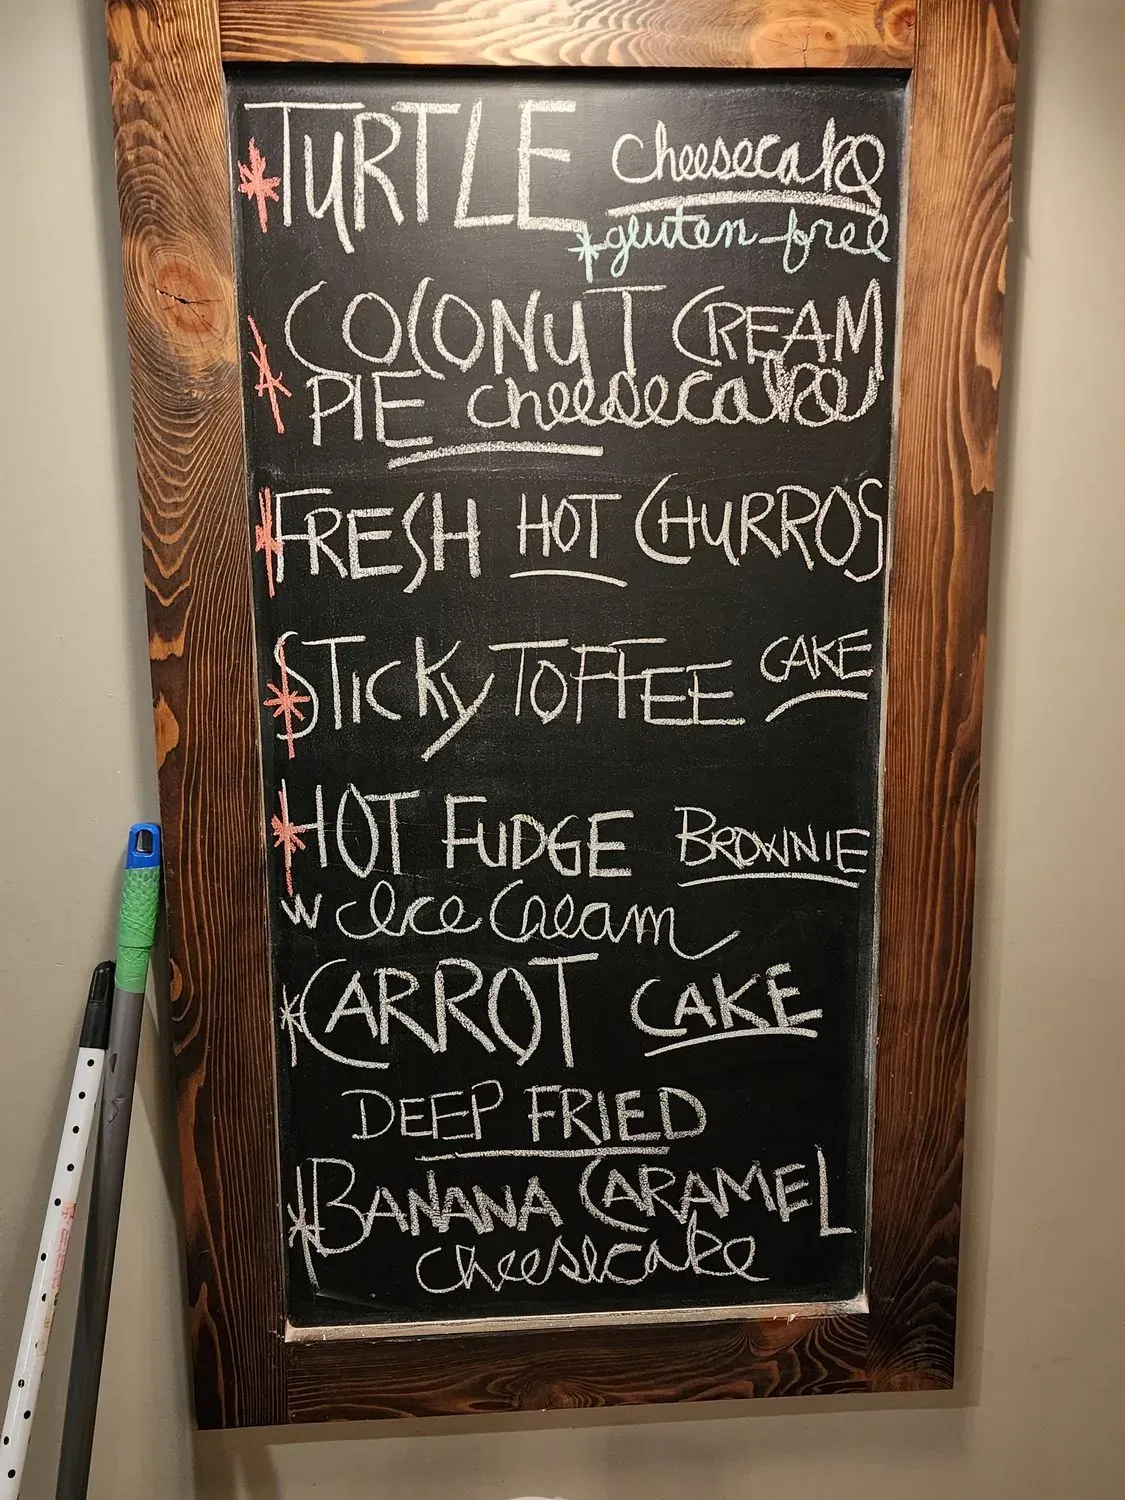 *TURTLE cheesecake
*gluten-free
*COCONUT CREAM
PIE cheesecake
*FRESH HOT CHURROS
*STICKY TOFFEE CAKE
*HOT FUDGE BROWNIE
w Ice Cream
*CARROT CAKE
DEEP FRIED
*BANANA CARAMEL
cheesecake